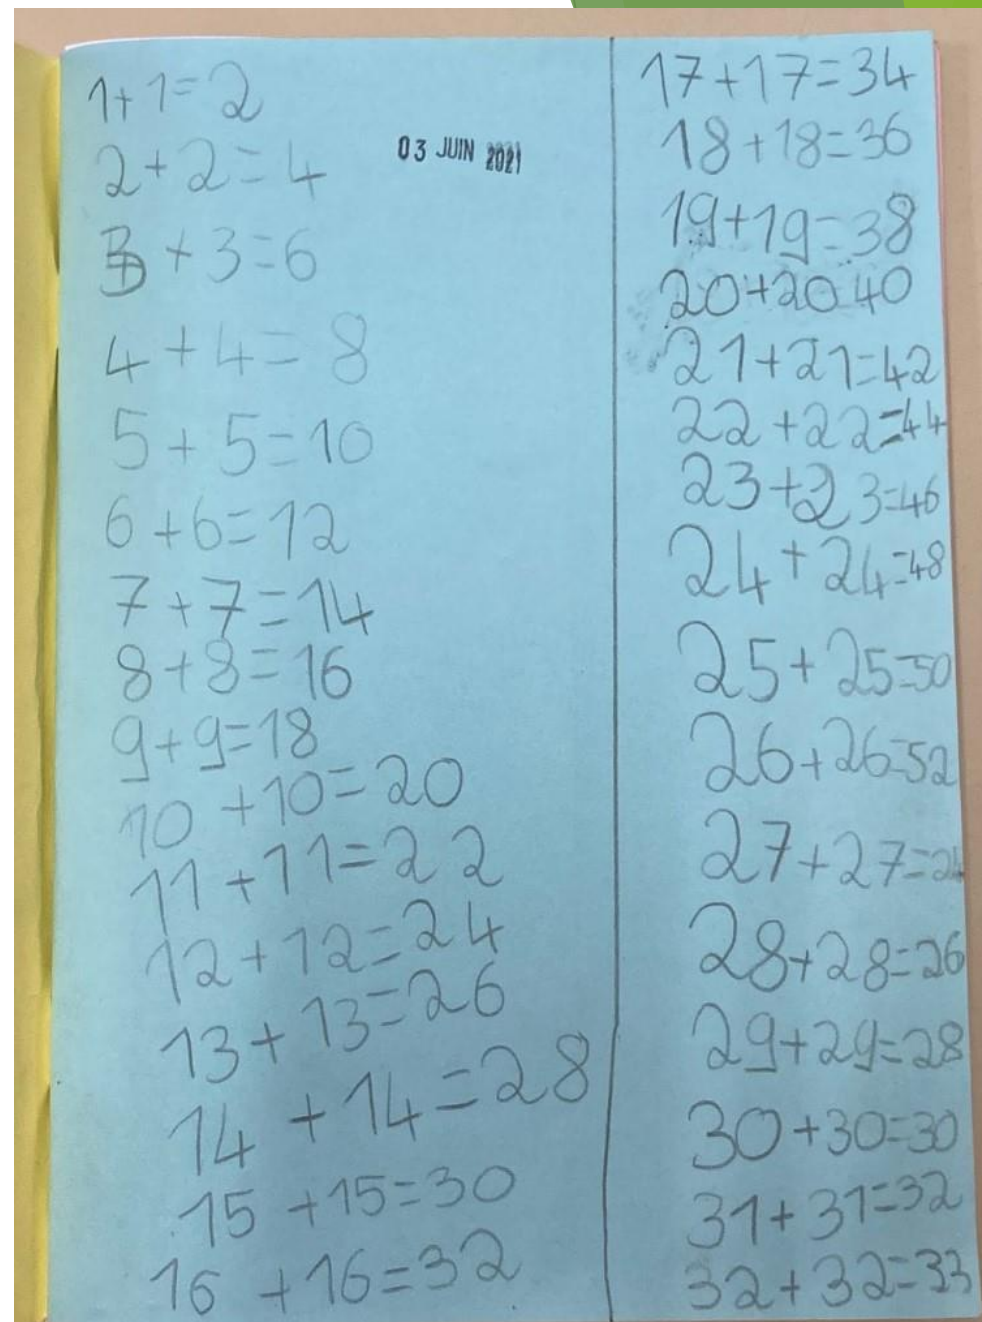 1+1=2
03 JUIN 2021
2+2=4
3+3=6
4+4=8
5+5=10
6+6=12
7+7=14
8+8=16
9+9=18
10+10=20
11+11=22
12+12=24
13+13=26
14+14=28
15+15=30
16+16=32
17+17=34
18+18=36
19+19=38
20+20 40
21+21=42
22+22=44
23+23=46
24+24=48
25+25=50
26+26=52
27+27=24
28+28=26
29+29=28
30+30=30
31+31=32
32+32=33